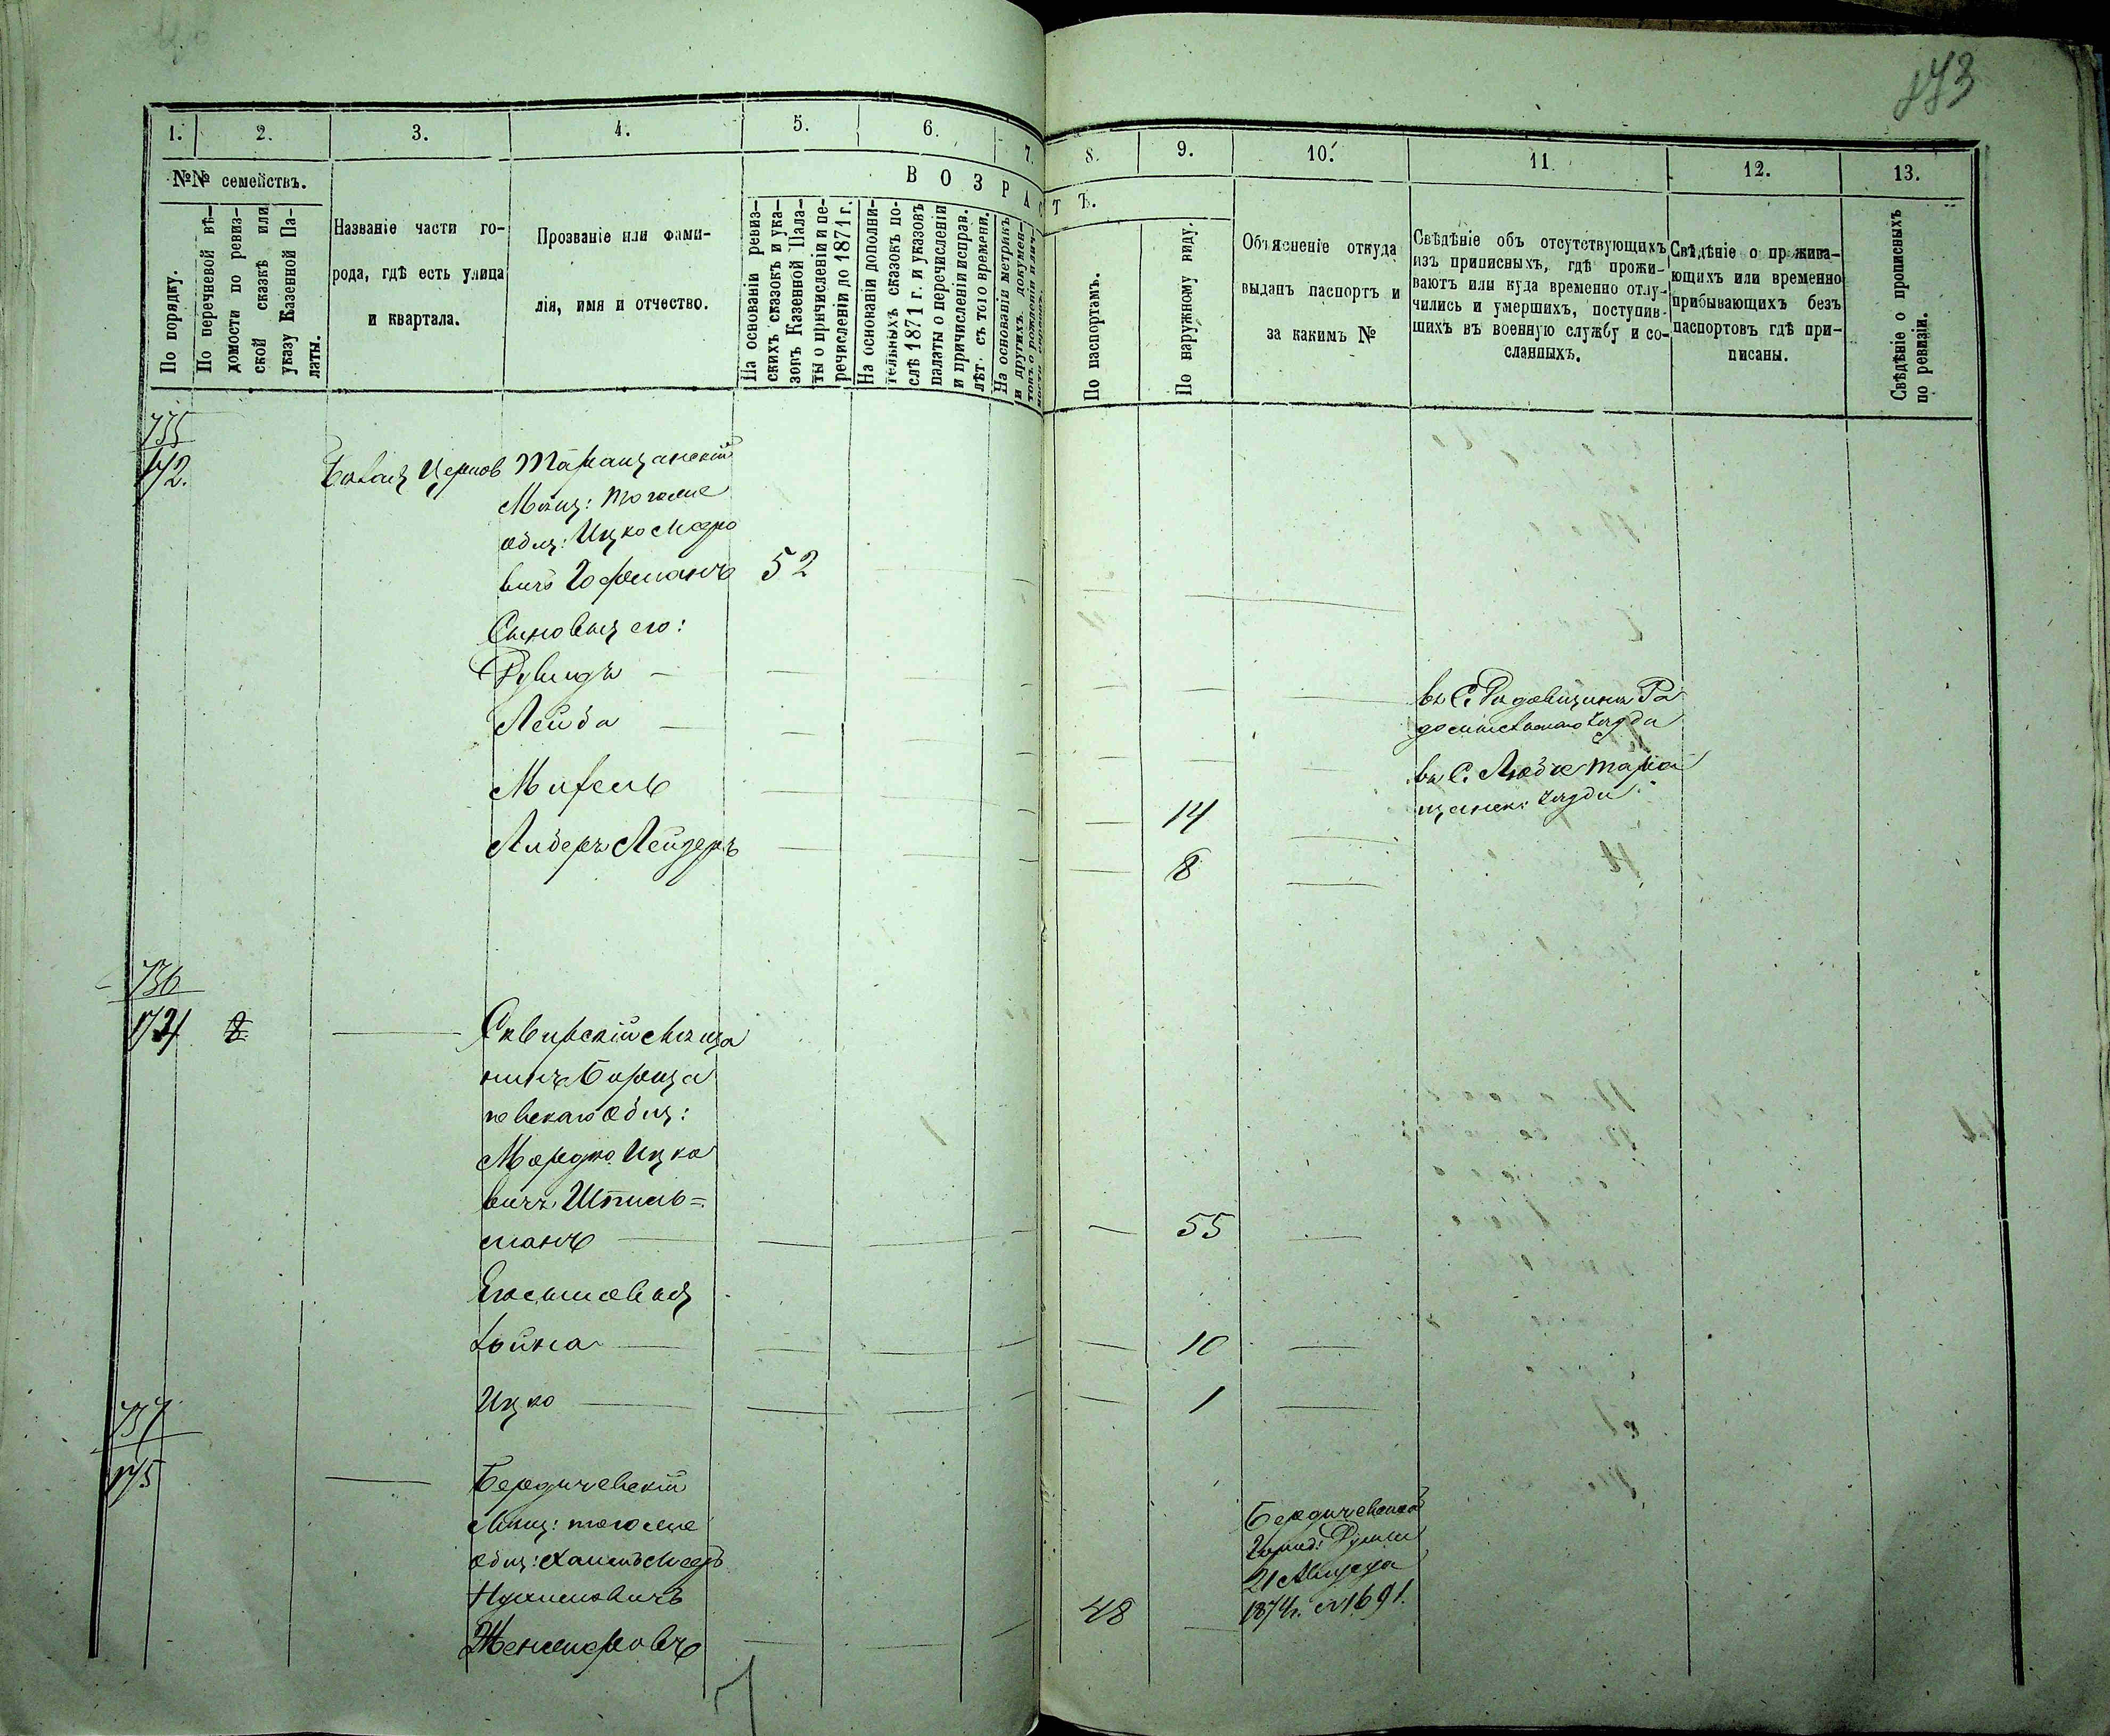 173
1.
2.
3.
4.
5.
6.
7.
8.
9.
10.
11.
12.
13.
№№ семействъ.
По порядку.
По перечневой вѣ-
домости по ревиз-
ской сказкѣ или
указу Казенной Па-
латы.
Названіе части го-
рода, гдѣ есть улица
и квартала.
Прозваніе или фами-
лія, имя и отчество.
ВОЗРАСТЪ.
На основаніи ревиз-
скихъ сказокъ и ука-
зовъ Казенной Пала-
ты о причисленіи и пе-
речисленіи до 1871 г.
На основаніи дополни-
тельныхъ сказокъ по-
слѣ 1871 г. и указовъ
палаты о перечисленіи
и причисленіи исправ.
лѣт. съ того времени.
На основаніи метрикъ
и другихъ докумен-
По паспортамъ.
По наружному виду.
Объясненіе откуда
выданъ паспортъ и
за какимъ №
Свѣдѣніе объ отсутствующихъ
изъ приписныхъ, гдѣ прожи-
ваютъ или куда временно отлу-
чились и умершихъ, поступив-
шихъ въ военную службу и со-
сланныхъ.
Свѣдѣніе о прожива-
ющихъ или временно
прибывающихъ безъ
паспортовъ гдѣ при-
писаны.
Свѣдѣніе о прописныхъ
по ревизіи.
735
172.
Бѣлая Церковь Таращанскій
Мѣщ: того же
общ: Ицко Меро
вичъ Гофманъ 52
Сыновья его:
Рувинъ
Лейба
въ С. Радовщинѣ Ра
домысльскаго уѣзда
Михель 14
въ С. Любче Тара
щанск: уѣзда
Либеръ Лейзеръ 8
736
174
Сквирскій Мѣща
нинъ Борща
говскаго общ:
Мордко Ицко
вичъ Шпиль=
манъ 55
Его сыновья
Хойна 10
Ицко 1
737
175
Бердичевскій
Мѣщ: того же
общ: Хаимъ
Нухимовичъ
48
Бердичевской
Город: Думы
21
1874 г. №1691.